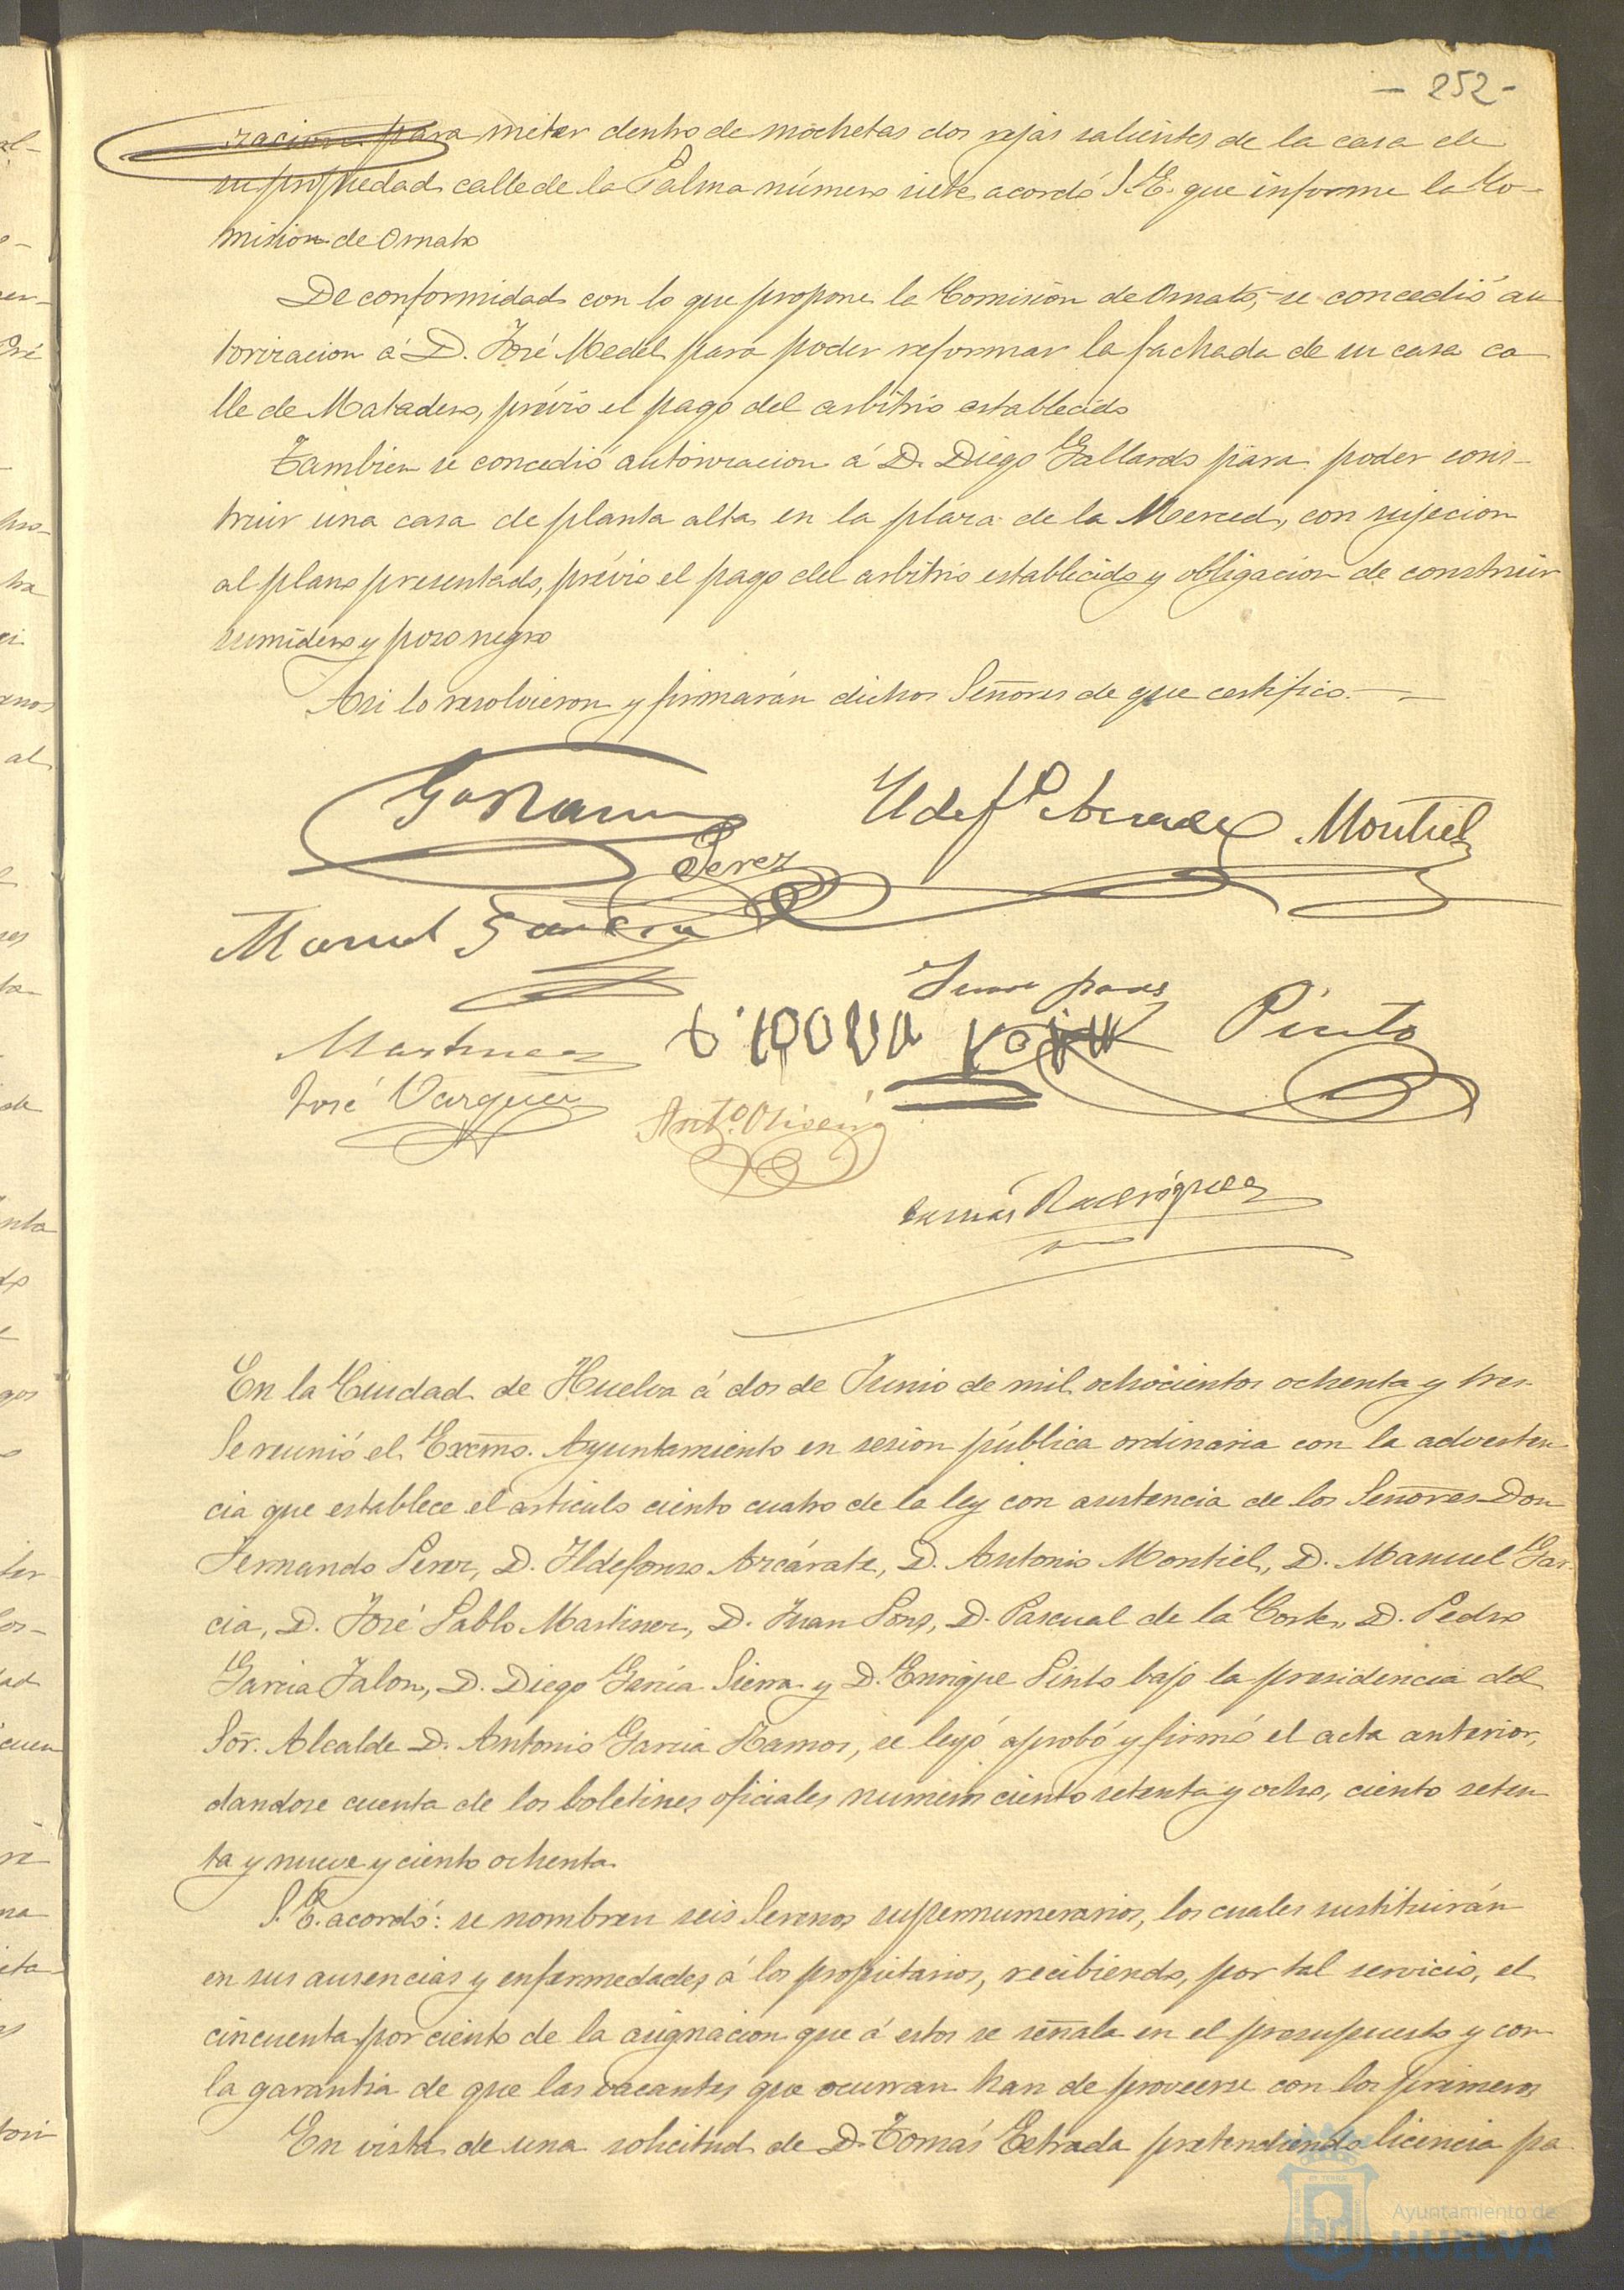 - 252 -
racion para meter dentro de mochetas dos rejas salientes de la casa de
su propiedad calle de la Palma número siete acordó S.E. que informe la Co-
mision de Ornato
De conformidad con lo que propone la Comision de Ornato, se concedió au
torizacion á D. José Medel para poder reformar la fachada de su casa ca
lle de Matadero, prévio el pago del arbitrio establecido
Tambien se concedió autorizacion á D. Diego Gallardo para poder cons-
truir una casa de planta alta en la plaza de la Merced, con sujecion
al plano presentado, prévio el pago del arbitrio establecido y obligacion de construir
sumidero y pozo negro
Asi lo resolvieron y firmarán dichos Señores de que certifico.
Gª Ramos
Ildefº Azcarate
Montiel
Perez
Manuel Garcia
Juan pons
Pinto
Martinez
José Vazquez
Antº. Oliveira
Tomás Rodriguez
En la Ciudad de Huelva á dos de Junio de mil ochocientos ochenta y tres
Se reunió el Excmo. Ayuntamiento en sesion pública ordinaria con la adverten
cia que establece el articulo ciento cuatro de la ley con asistencia de los Señores Don
Fernando Perez, D. Ildefonso Azcárate, D. Antonio Montiel, D. Manuel Gar-
cia, D. José Pablo Martinez, D. Juan Pons, D. Pascual de la Corte, D. Pedro
Garcia Jalon, D. Diego Garcia Sierra y D. Enrique Pinto bajo la presidencia del
Sōr. Alcalde D. Antonio Garcia Ramos, se leyó aprobó y firmó el acta anterior,
dandose cuenta de los boletines oficiales numeros ciento setenta y ocho, ciento seten
ta y nueve y ciento ochenta
S.E. acordó: se nombren seis Serenos supernumerarios, los cuales sustituirán
en sus ausencias y enfermedades, á los propietarios, recibiendo, por tal servicio, el
cincuenta por ciento de la asignacion que á estos se señala en el presupuesto y con
la garantia de que las vacantes que ocurran han de proveerse con los primeros
En vista de una solicitud de D. Tomás Estrada pretendiendo licencia pa
Ayuntamiento de
HUELVA